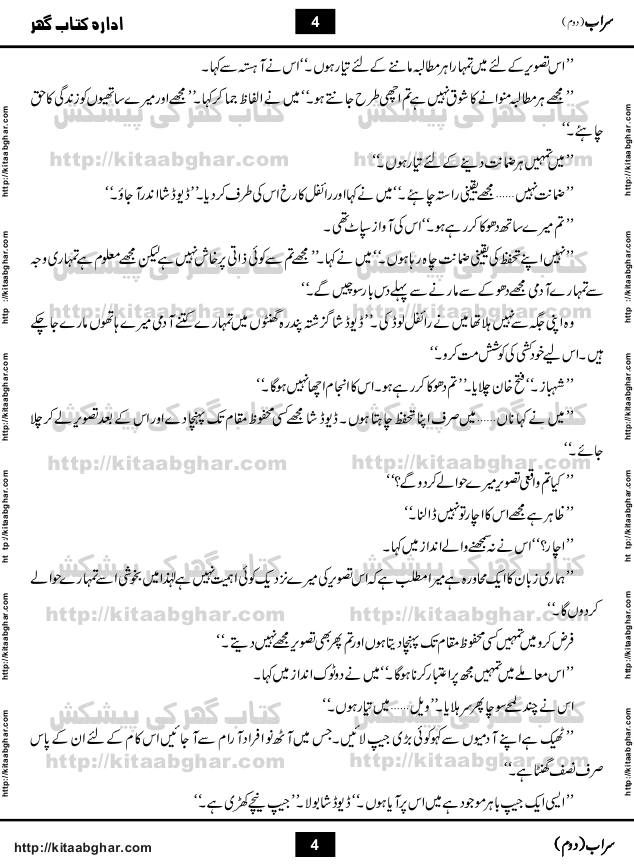 اداره کتاب گھر
4
سراب (دوم)
’’اس تصویر کے لئے میں تمہارا ہر مطالبہ ماننے کے لئے تیار ہوں۔‘‘ اس نے آہستہ سے کہا۔
’’مجھے ہر مطالبہ منوانے کا شوق نہیں ہے تم اچھی طرح جانتے ہو۔‘‘ میں نے الفاظ جما کر کہا۔ ’’مجھے اور میرے ساتھیوں کو زندگی کا حق
چاہئے۔‘‘
’’میں تمہیں ہر ضمانت دینے کے لئے تیار ہوں۔‘‘
’’ضمانت نہیں...... مجھے یقینی راستہ چاہئے۔‘‘ میں نے کہا اور رائفل کا رخ اس کی طرف کر دیا۔ ’’ڈیوڈ شا اندر آ جاؤ۔‘‘
’’تم میرے ساتھ دھوکا کر رہے ہو۔‘‘ اس کی آواز سپاٹ تھی۔
’’نہیں اپنے تحفظ کی یقینی ضمانت چاہ رہا ہوں۔‘‘ میں نے کہا۔ ’’مجھے تم سے کوئی ذاتی پرخاش نہیں ہے لیکن مجھے معلوم ہے تمہاری وجہ
سے تمہارے آدمی مجھے دھوکے سے مارنے سے پہلے دس بار سوچیں گے۔‘‘
وہ اپنی جگہ سے نہیں ہلا تھا میں نے رائفل لوڈ کی۔ ’’ڈیوڈ شا گزشتہ پندرہ گھنٹوں میں تمہارے کتنے آدمی میرے ہاتھوں مارے جا چکے
ہیں۔ اس لیے خودکشی کی کوشش مت کرو۔‘‘
’’شہباز۔‘‘ فتح خان چلایا۔ ’’تم دھوکا کر رہے ہو۔ اس کا انجام اچھا نہیں ہو گا۔‘‘
’’میں نے کہا ناں...... میں صرف اپنا تحفظ چاہتا ہوں۔ ڈیوڈ شا مجھے کسی محفوظ مقام تک پہنچا دے اور اس کے بعد تصویر لے کر چلا
جائے۔‘‘
’’کیا تم واقعی تصویر میرے حوالے کر دو گے؟‘‘
’’ظاہر ہے مجھے اس کا اچار تو نہیں ڈالنا۔‘‘
’’اچار؟‘‘ اس نے نہ سمجھنے والے انداز میں کہا۔
’’ہماری زبان کا ایک محاورہ ہے میرا مطلب ہے کہ اس تصویر کی میرے نزدیک کوئی اہمیت نہیں ہے لہٰذا میں بخوشی اسے تمہارے حوالے
کر دوں گا۔‘‘
فرض کرو میں تمہیں کسی محفوظ مقام تک پہنچا دیتا ہوں اور تم پھر بھی تصویر مجھے نہیں دیتے۔‘‘
’’اس معاملے میں تمہیں مجھ پر اعتبار کرنا ہو گا۔‘‘ میں نے دو ٹوک انداز میں کہا۔
اس نے چند لمحے سوچا پھر سر ہلایا۔ ’’ویل...... میں تیار ہوں۔‘‘
’’ٹھیک ہے اپنے آدمیوں سے کہو کوئی بڑی جیپ لائیں۔ جس میں آٹھ نو افراد آرام سے آ جائیں اس کام کے لئے ان کے پاس
صرف نصف گھنٹا ہے۔‘‘
’’ایسی ایک جیپ باہر موجود ہے میں اس پر آیا ہوں۔‘‘ ڈیوڈ شا بولا۔ ’’جیپ نیچے کھڑی ہے۔‘‘
http://kitaabghar.com
4
سراب (دوم)